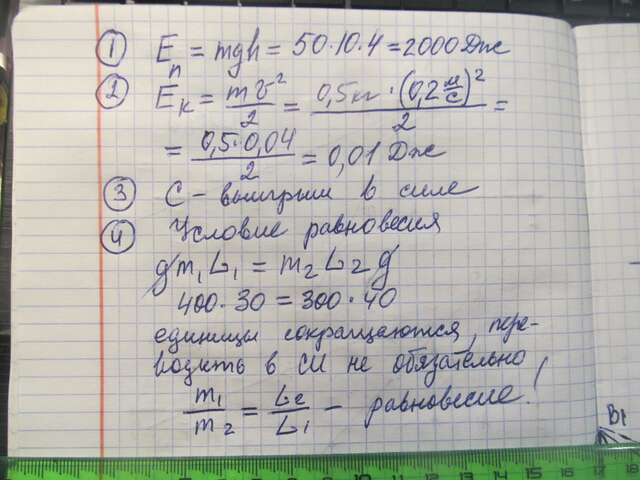 ① Eп = mgh = 50·10·4 = 2000 Дж
② Eк = mv²/2 = 0,5кг·(0,2 м/с)²/2 =
= 0,5·0,04/2 = 0,01 Дж
③ С – выигрыш в силе
④ Условие равновесия
gm₁L₁ = m₂L₂g
400·30 = 300·40
единицы сокращаются, пере-
водить в СИ не обязательно!
m₁/m₂ = L₂/L₁ – равновесие
B1
6 7 8 9 10 11 12 13 14 15 16 17 18